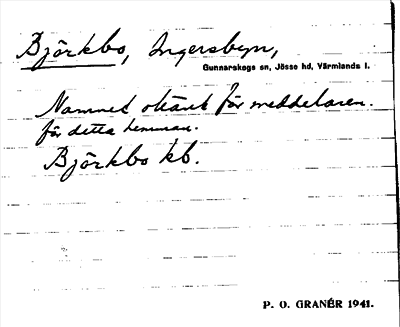 Björkbo, Ingersbyn,
Gunnarskogs sn, Jösse hd, Värmlands l.
Namnet okänt för meddelaren.
för detta hemman.
Björkbo kb.
P. O. GRANÉR 1941.